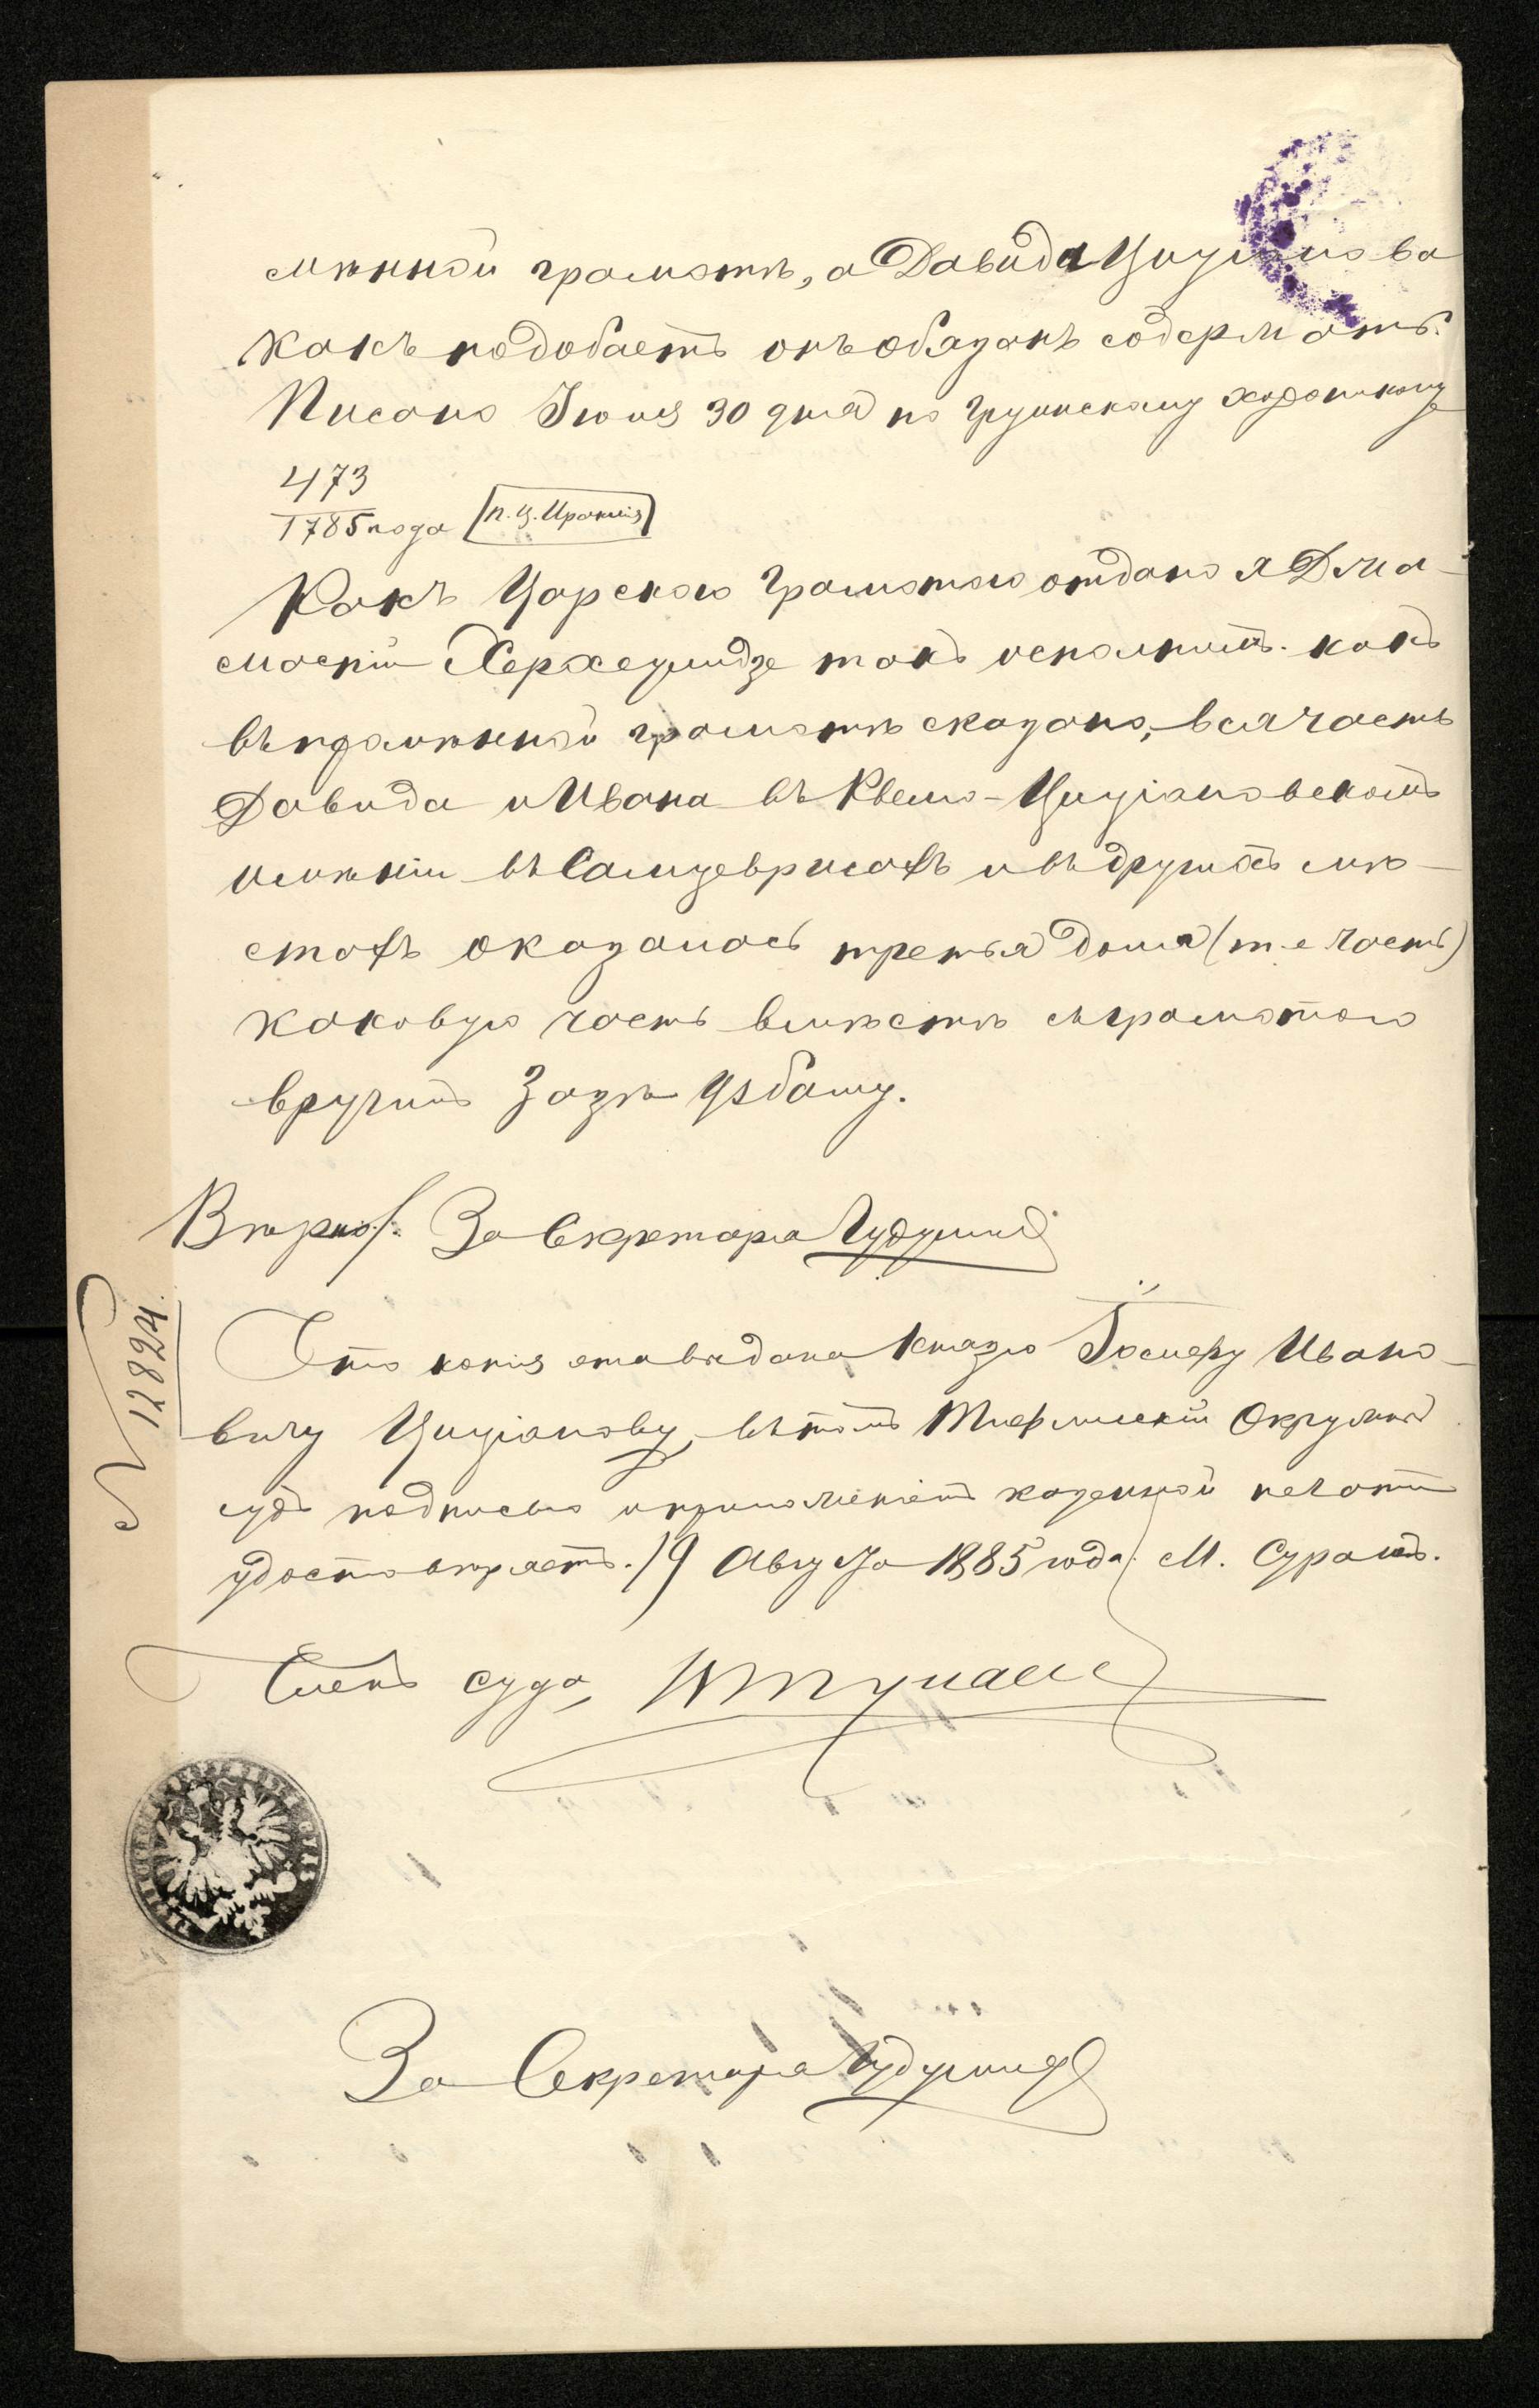 мянной грамотѣ, а Давида Циціанова
какъ подобаетъ онъ обязанъ содержать.
Писано Іюня 30 дня по Грузинскому
473
1785 года [п. Ц. Ираклія]
Какъ Царскою Грамотою отдано я Джа-
Херхеулидзе такъ исполнилъ. какъ
въ грамотѣ сказано, вся часть
Давида и Ивана въ Квемо-Циціановскомъ
имѣніи въ и въ другихъ мѣ-
стахъ оказалась третья доля (т.е часть)
каковую часть вмѣстѣ съ грамотою
вручилъ Зазѣ Узбашу.
Вѣрно: За Секретаря
N 12824.
Что копія эта выдана Князю Іосифу Ивано-
вичу Циціанову, въ томъ Тифлисскій Окружный
судъ подписью и приложеніемъ казенной печати
удостовѣряетъ. 19 Августа 1885 года. М. Сурамъ.
Членъ суда,
За Секретаря